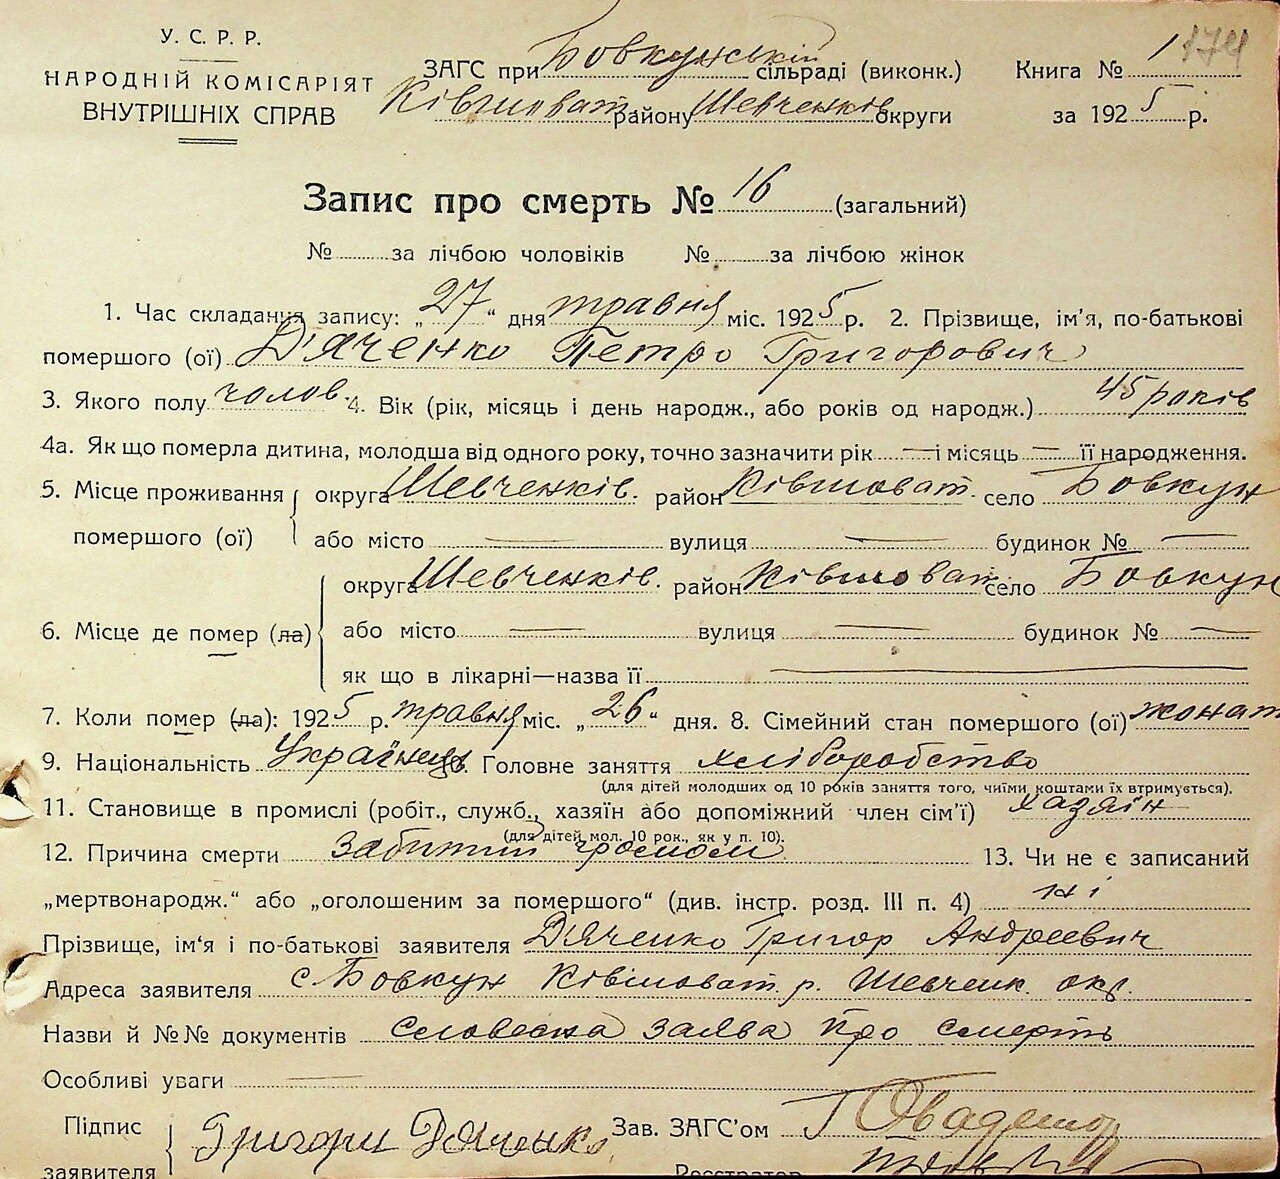 У. С. Р. Р.
НАРОДНІЙ КОМІСАРІЯТ
ВНУТРІШНІХ СПРАВ
ЗАГС при Бовкунській сільраді (виконк.) Книга № 1 174
Ківшоват району Шевченків округи за 1925 р.
Запис про смерть № 16 (загальний)
№ за лічбою чоловіків № за лічбою жінок
1. Час складання запису: „27“ дня травня міс. 1925 р. 2. Прізвище, ім'я, по-батькові
помершого (ої) Д'яченко Петро Григорович
3. Якого полу чолов. 4. Вік (рік, місяць і день народж., або років од народж.) 45 років
4а. Як що померла дитина, молодша від одного року, точно зазначити рік — і місяць — її народження.
5. Місце проживання помершого (ої) округа Шевченків. район Ківшоват. село Бовкун
або місто — вулиця — будинок № —
6. Місце де помер (ла) округа Шевченків. район Ківшоват. село Бовкун
або місто — вулиця — будинок № —
як що в лікарні—назва її —
7. Коли помер (ла): 1925 р. травня міс. „26“ дня. 8. Сімейний стан помершого (ої) жонат
9. Національність Українець. Головне заняття хліборобство
(для дітей молодших од 10 років заняття того, чиїми коштами їх втримується).
11. Становище в промислі (робіт., служб., хазяїн або допоміжний член сім'ї) хазяїн
(для дітей мол. 10 рок., як у п. 10).
12. Причина смерти забитий громом 13. Чи не є записаний
„мертвонародж.“ або „оголошеним за помершого“ (див. інстр. розд. III п. 4) ні
Прізвище, ім'я і по-батькові заявителя Д'яченко Григор Андреевич
Адреса заявителя с. Бовкун Ківшоват. р. Шевченк. окр.
Назви й №№ документів словесна заява про смерть
Особливі уваги —
Підпис заявителя Григори Дяченко Зав. ЗАГС'ом
Реєстратор